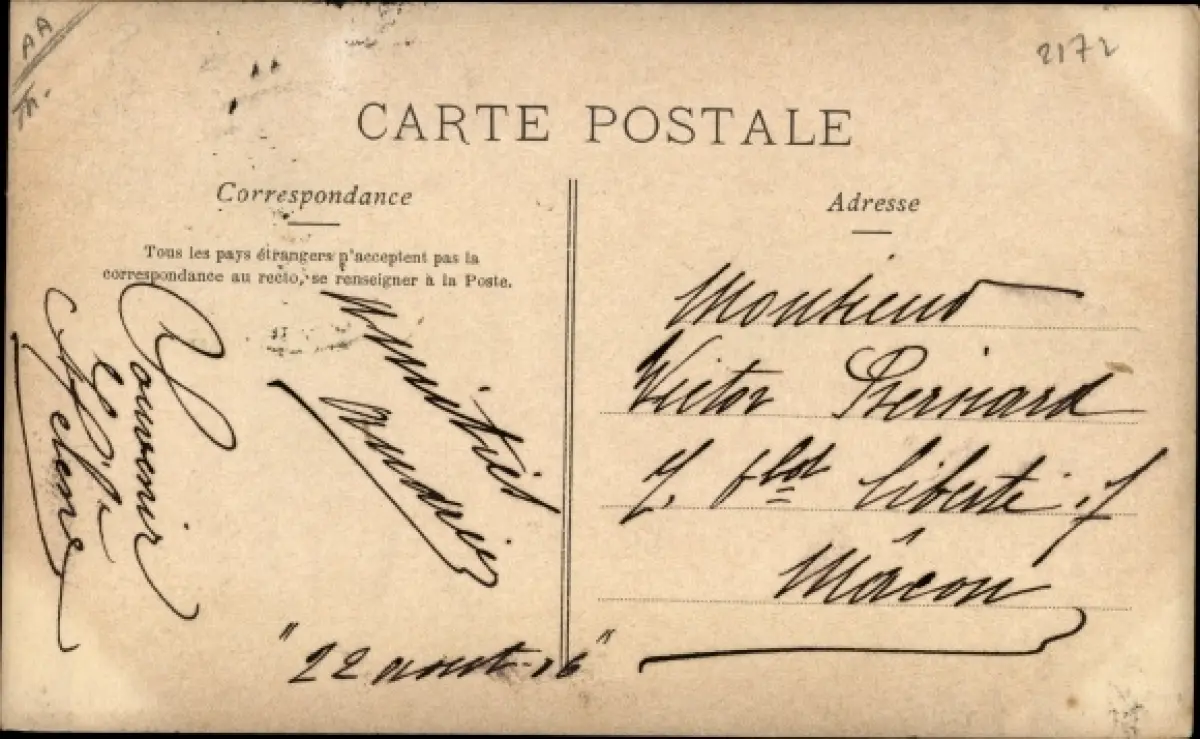 AA
Th.
2172
CARTE POSTALE
Correspondance
Tous les pays étrangers n'acceptent pas la
correspondance au recto, se renseigner à la Poste.
Souvenir
et
amitiés
"22 aout 16"
Adresse
Monsieur
Victor Bernard
7, liberté, 7
Mâcon